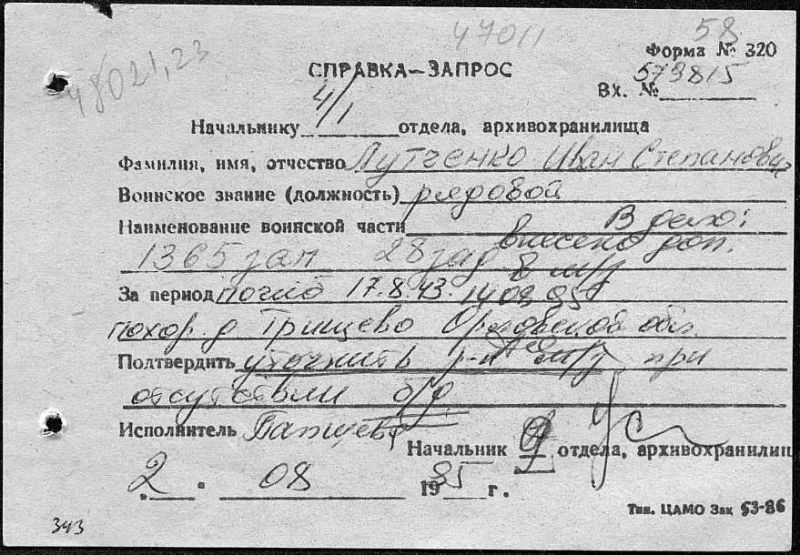 47011
58
48021,23
Форма № 320
СПРАВКА—ЗАПРОС
573815
Вх. №
4/1
Начальнику отдела, архивохранилища
Фамилия, имя, отчество Лутченко Иван Степанович
Воинское звание (должность) рядовой
Наименование воинской части В дело:
внесено доп.
1365 зап 28 зад в м/г
За период погиб 17.8.43.
похор. д Грищево Орловской обл.
Подтвердить уточнить р-н м/г при
отсутствии б/р
Исполнитель
Начальник отдела, архивохранилищ
2 08 1985 г.
Тип. ЦАМО Зак 53-86
343